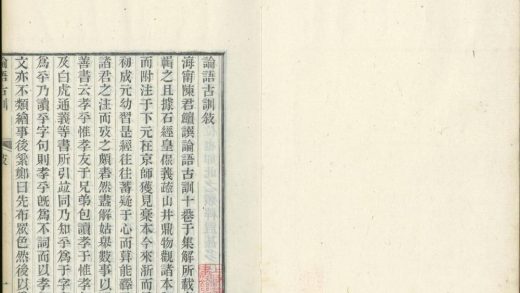 論語古訓敘
海甯陳君鱣譔論語古訓十卷于集解所載
輯之且據石經皇侃義疏山井鼎物觀諸本
而附注于下元在京師獲見稾本今來浙而
初成元幼習是經往往蓄疑于心而莫能釋
諸君之注而攷之頗者然盡解姑舉數事以
善書云孝乎惟孝友于兄弟包讀孝于惟孝
及白虎通義等書所引竝同乃知乎爲于字
爲乎乃讀乎字句則孝乎旣爲不詞而以孝
文亦不類繪事後素鄭曰先布眾色然後以
論語古訓